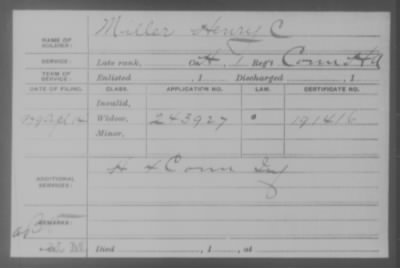 NAME OF SOLDIER: Miller Henry C
SERVICE: Late rank, Co. H, 1 Reg't Conn H A
TERM OF SERVICE: Enlisted , 1 Discharged , 1
DATE OF FILING. CLASS. APPLICATION NO. LAW. CERTIFICATE NO.
Invalid,
Widow, 243927 191416
Minor,
ADDITIONAL SERVICES: H 4 Conn Inf
REMARKS:
Died , 1 , at